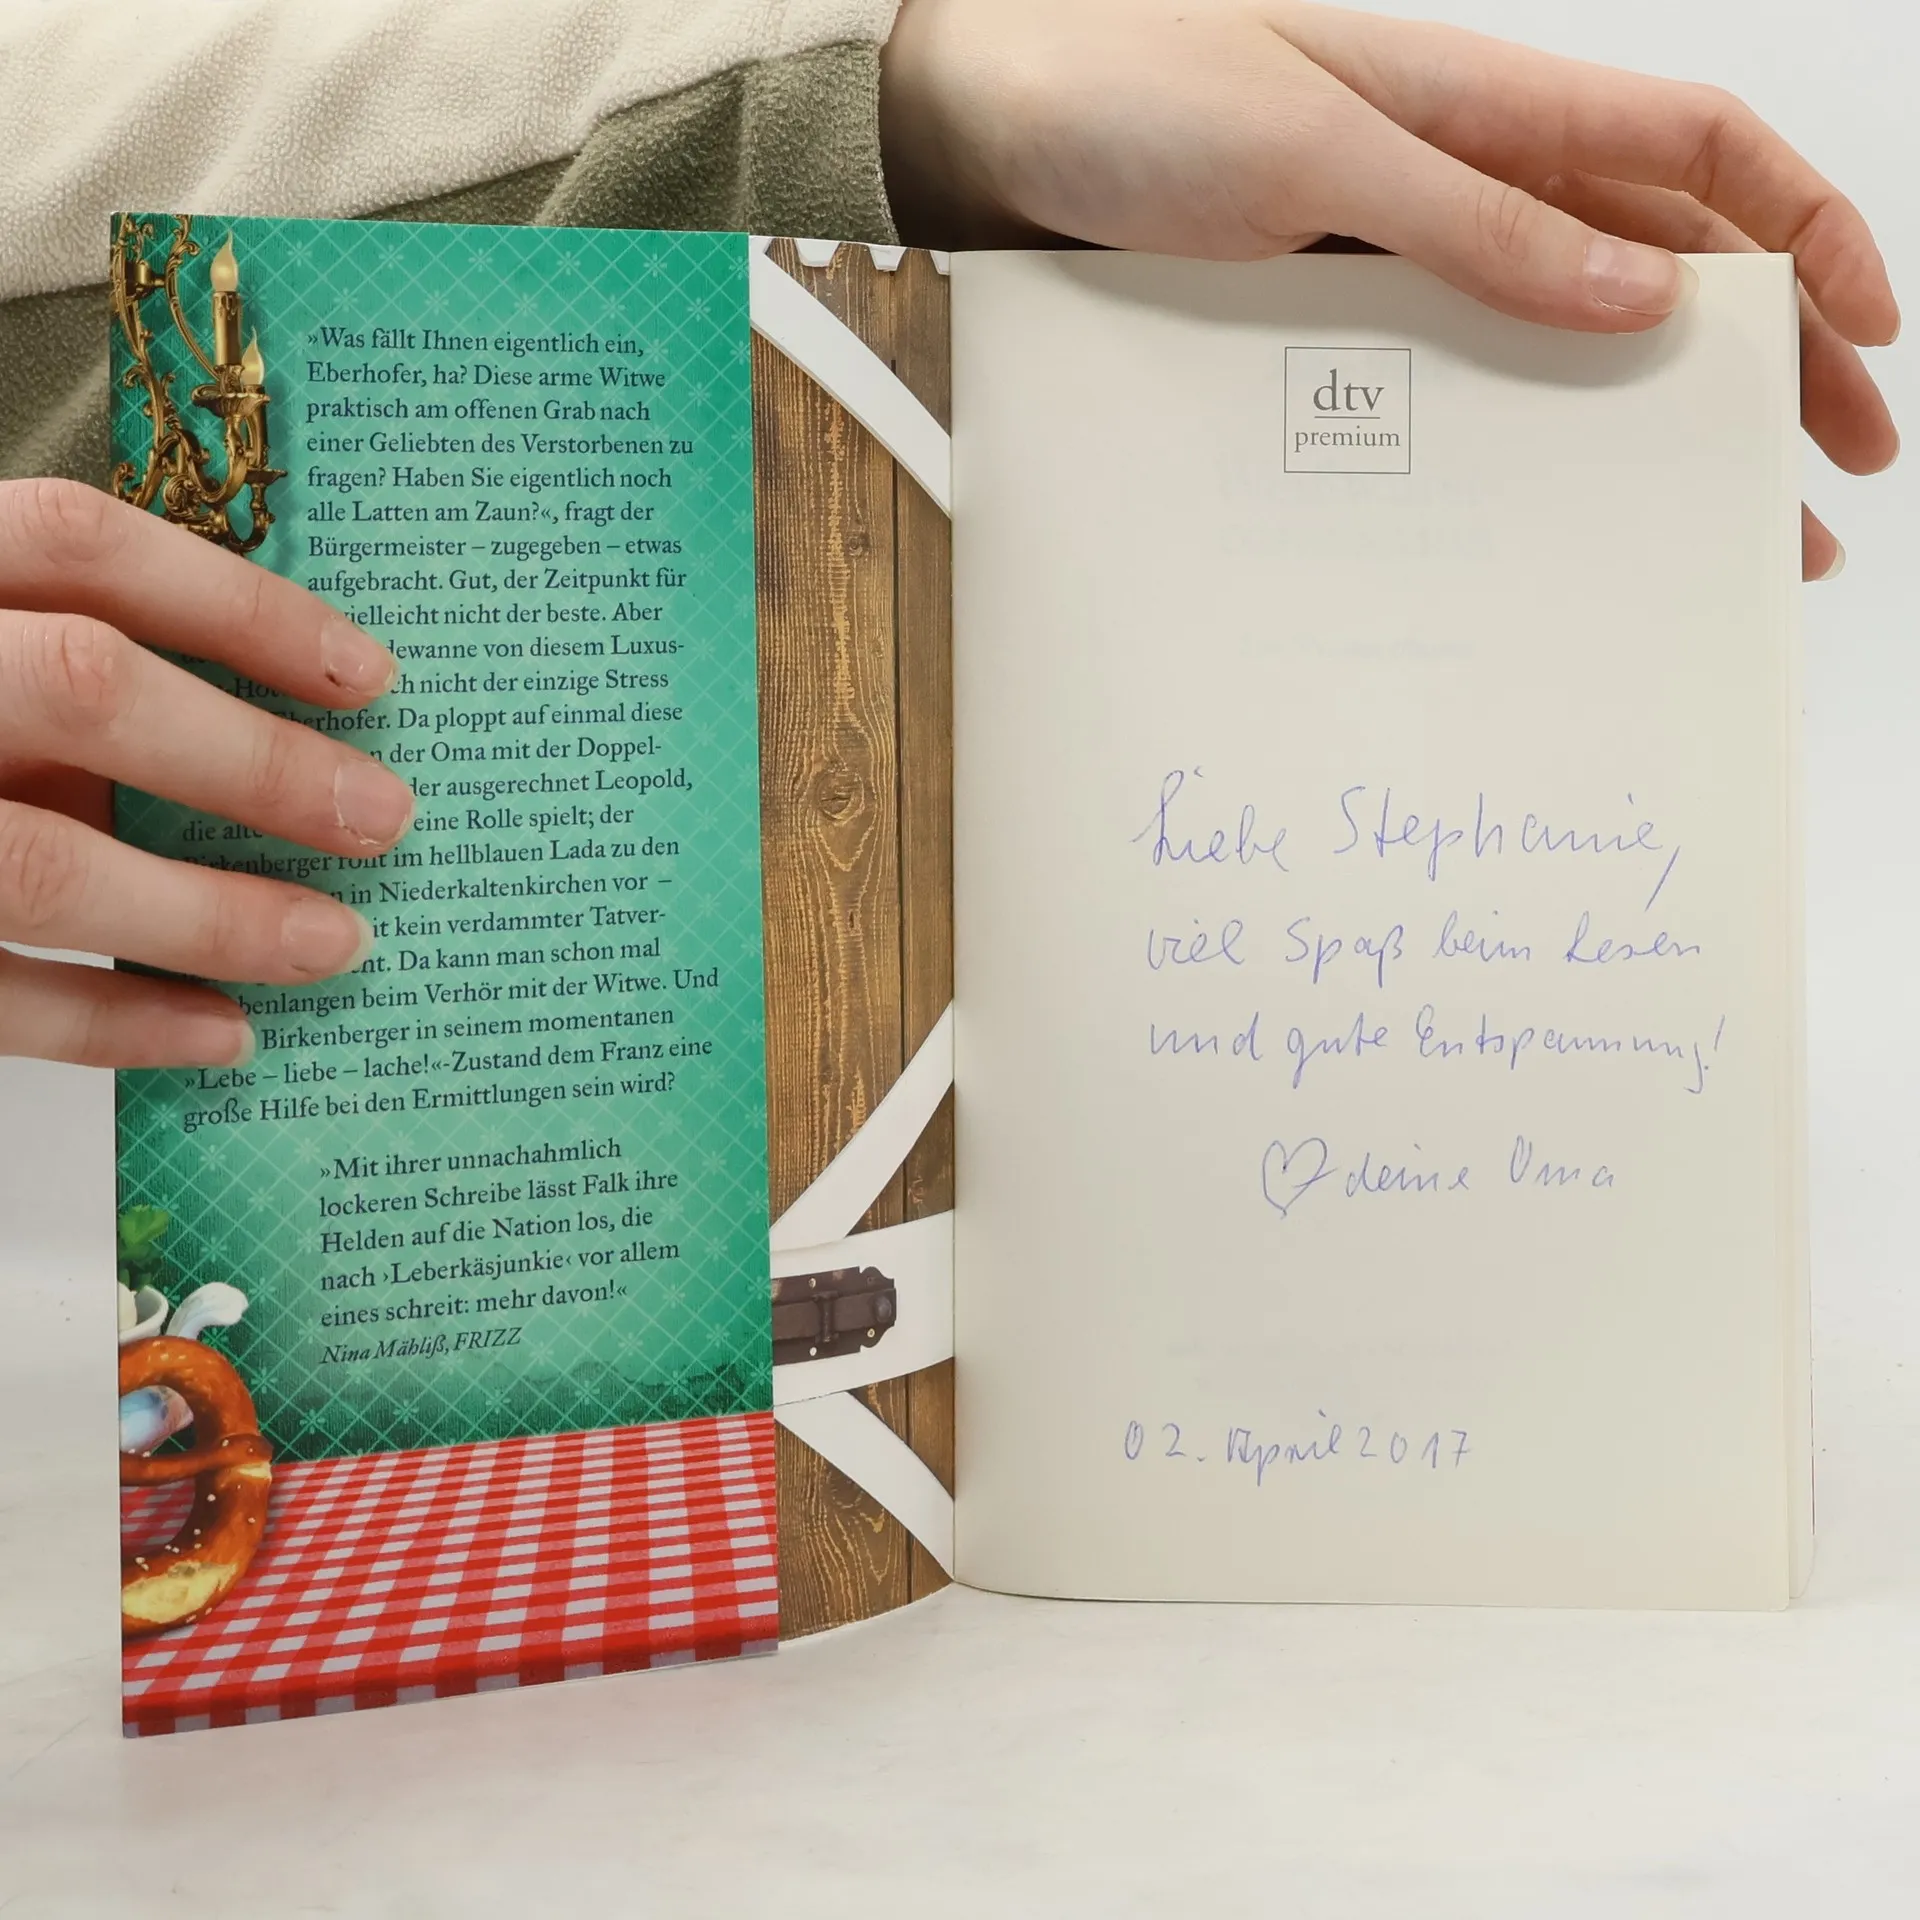 »Was fällt Ihnen eigentlich ein,
Eberhofer, ha? Diese arme Witwe
praktisch am offenen Grab nach
einer Geliebten des Verstorbenen zu
fragen? Haben Sie eigentlich noch
alle Latten am Zaun?«, fragt der
Bürgermeister – zugegeben – etwas
aufgebracht. Gut, der Zeitpunkt für
vielleicht nicht der beste. Aber
von diesem Luxus-
nicht der einzige Stress
Da ploppt auf einmal diese
der Oma mit der Doppel-
ausgerechnet Leopold,
die eine Rolle spielt; der
Birkenberger im hellblauen Lada zu den
in Niederkaltenkirchen vor –
kein verdammter Tatver-
Da kann man schon mal
beim Verhör mit der Witwe. Und
Birkenberger in seinem momentanen
»Lebe – liebe – lache!«-Zustand dem Franz eine
große Hilfe bei den Ermittlungen sein wird?
»Mit ihrer unnachahmlich
lockeren Schreibe lässt Falk ihre
Helden auf die Nation los, die
nach ›Leberkäsjunkie‹ vor allem
eines schreit: mehr davon!«
Nina Mähliß, FRIZZ
dtv
premium
Liebe Stephanie,
viel Spaß beim Lesen
und gute Entspannung!
♡ deine Oma
02. April 2017